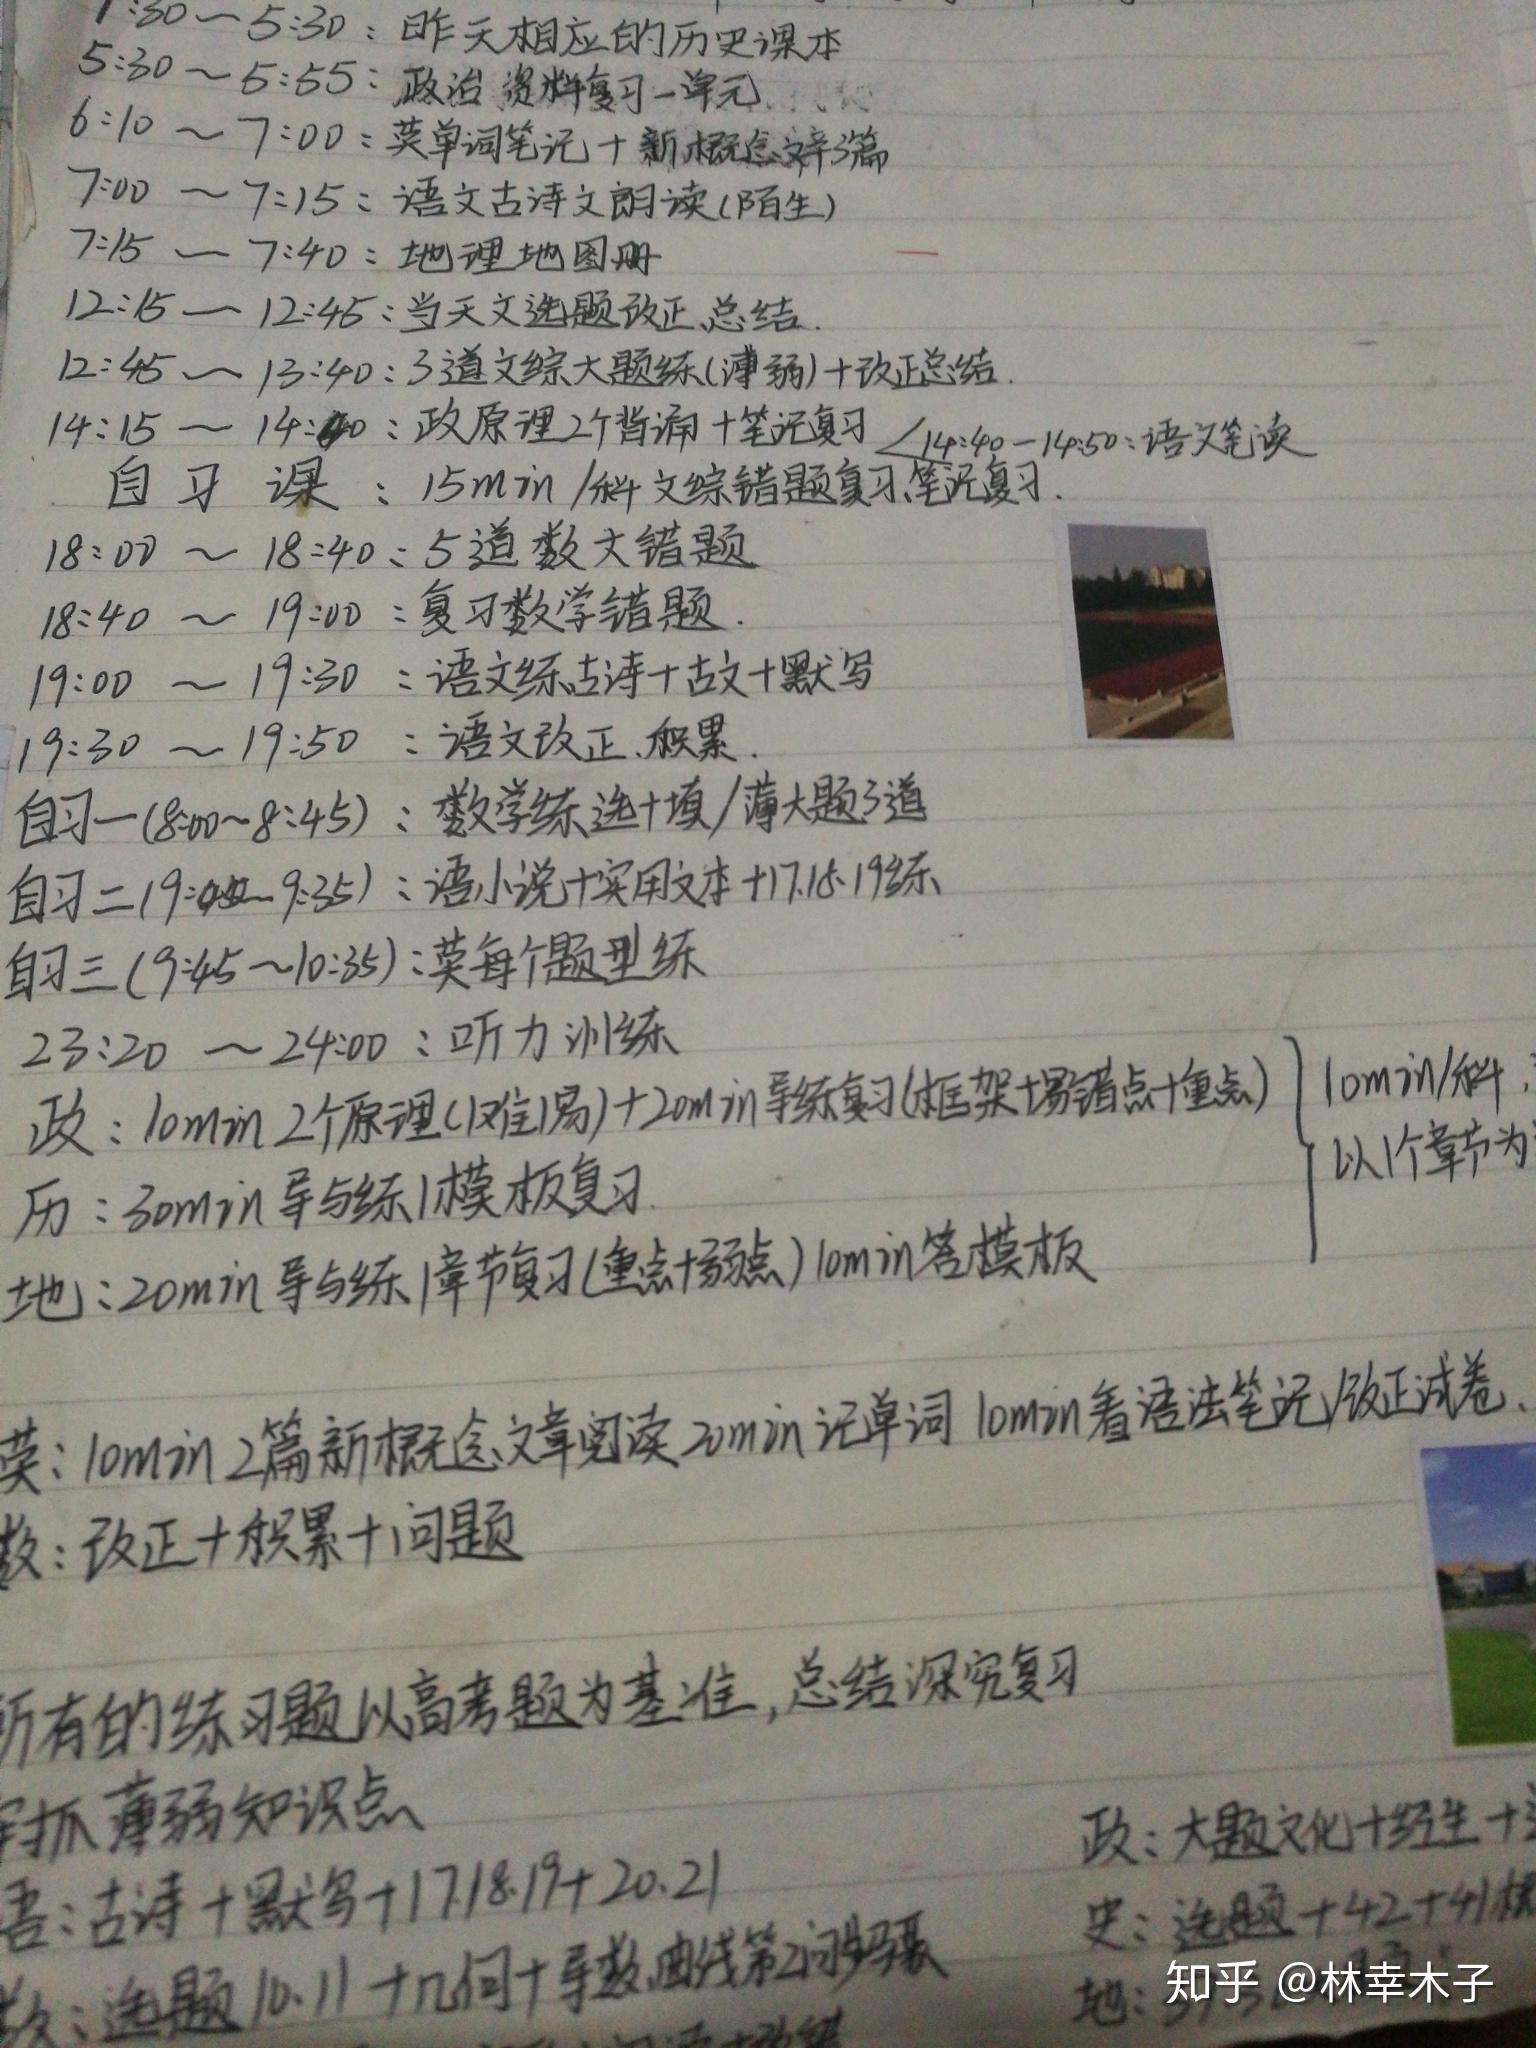 :30～5:30：昨天相应的历史课本
5:30～5:55：政治资料复习一单元
6:10～7:00：英单词笔记+新概念文章3篇
7:00～7:15：语文古诗文朗读(陌生)
7:15～7:40：地理地图册
12:15～12:45：当天文选题改正、总结.
12:45～13:40：3道文综大题练(薄弱)+改正总结.
14:15～14:40：政原理2个背诵+笔记复习 <14:40-14:50：语文笔读
自习课：15min/科文综错题复习、笔记复习.
18:00～18:40：5道数大错题
18:40～19:00：复习数学错题.
19:00～19:30：语文练古诗+古文+默写
19:30～19:50：语文改正、积累.
自习一(8:00~8:45)：数学练选+填/薄大题3道
自习二(9: ~9:35)：语小说+实用文本+17.18.19练
自习三(9:45~10:35)：英每个题型练
23:20～24:00：听力训练
政：10min 2个原理(1难1易)+20min导练复习(框架+易错点+重点) 10min/科,
历：30min导与练1模板复习. 以1个章节为
地：20min导与练1章节复习(重点+弱点)10min答模板
英：10min 2篇新概念文章阅读20min记单词 10min看语法笔记/改正试卷、
数：改正+积累+问题
所有的练习题以高考题为基准,总结深究复习
抓薄弱知识点
语：古诗+默写+17.18.19+20.21
政：大题文化+经生+
数：选题10.11+几何+导数、曲线第2问步骤
史：选题+42+41
地：
知乎 @林幸木子